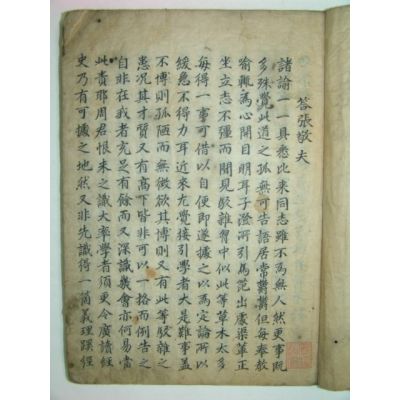 答張敬夫
諸諭一一具悉比来同志雖不爲無人然更事既
多殊覺此道之孤無可告語居常鬱鬱但每奉教
喻輒爲心開目明耳子澄所引馬范出處渠輩正
坐立志不彊而聞見駁雜胷中似此等草木太多
每得一事可借以自便即遂據之以爲定論所以
緩急不得力耳近来尤覺接引學者大是難事盖
不博則孤陋而無徵欲其博則又有此等駁雜之
患况其才質又有高下皆非可以一捂而例告之
自非在我者充足有餘而又深識幾會亦何易當
此責耶周君恨未之識大率學者須更令廣讀經
史乃有可據之地然又非先識得一箇義理蹊徑